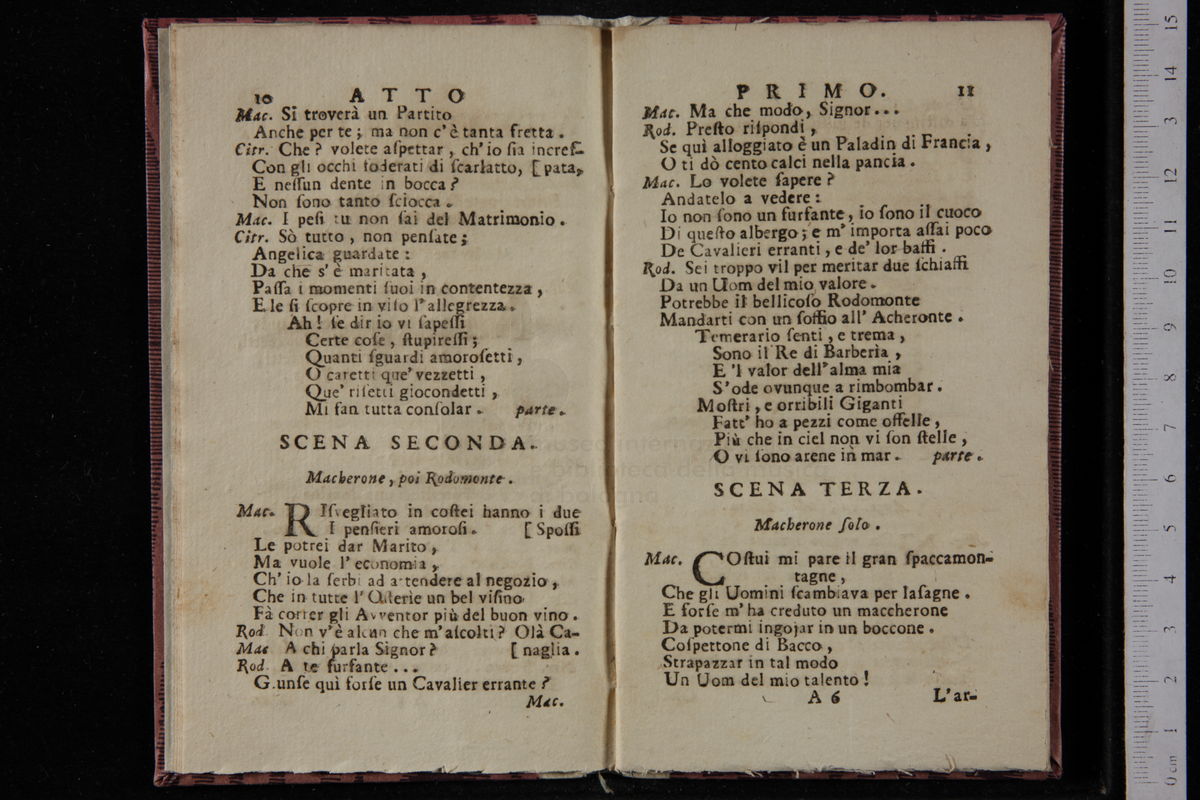 10 ATTO
Mac. Si troverà un Partito
Anche per te; ma non c'è tanta fretta.
Citr. Che? volete aſpettar, ch'io ſia increſ-
Con gli occhi foderati di ſcarlatto, [pata,
E neſſun dente in bocca?
Non ſono tanto ſciocca.
Mac. I peſi tu non ſai del Matrimonio.
Citr. Sò tutto, non penſate;
Angelica guardate:
Da che s'è maritata,
Paſſa i momenti ſuoi in contentezza,
E le ſi ſcopre in viſo l'allegrezza.
Ah! ſe dir io vi ſapeſſi
Certe coſe, ſtupireſſi;
Quanti ſguardi amoroſetti,
O caretti que' vezzetti,
Que' riſetti giocondetti,
Mi fan tutta conſolar. parte.
SCENA SECONDA.
Macherone, poi Rodomonte.
Mac. RIſvegliato in coſtei hanno i due
I penſieri amoroſi. [Spoſſi
Le potrei dar Marito,
Ma vuole l'economia,
Ch'io la ſerbi ad attendere al negozio,
Che in tutte l'Oſterie un bel viſino
Fà correr gli Avventor più del buon vino.
Rod. Non v'è alcun che m'aſcolti? Olà Ca-
Mac A chi parla Signor? [naglia.
Rod. A te furfante...
G.unſe quì forſe un Cavalier errante?
Mac.
PRIMO. 11
Mac. Ma che modo, Signor...
Rod. Preſto riſpondi,
Se quì alloggiato è un Paladin di Francia,
O ti dò cento calci nella pancia.
Mac. Lo volete ſapere?
Andatelo a vedere:
Io non ſono un furfante, io ſono il cuoco
Di queſto albergo; e m'importa aſſai poco
De Cavalieri erranti, e de' lor baffi.
Rod. Sei troppo vil per meritar due ſchiaffi
Da un Uom del mio valore.
Potrebbe il bellicoſo Rodomonte
Mandarti con un ſoffio all' Acheronte.
Temerario ſenti, e trema,
Sono il Re di Barberìa,
E 'l valor dell'alma mia
S'ode ovunque a rimbombar.
Moſtri, e orribili Giganti
Fatt' ho a pezzi come offelle,
Più che in ciel non vi ſon ſtelle,
O vi ſono arene in mar. parte.
SCENA TERZA.
Macherone ſolo.
Mac. COſtui mi pare il gran ſpaccamon-
tagne,
Che gli Uomini ſcambiava per laſagne.
E forſe m'ha creduto un maccherone
Da potermi ingojar in un boccone.
Coſpettone di Bacco,
Strapazzar in tal modo
Un Uom del mio talento!
A 6 L'ar-